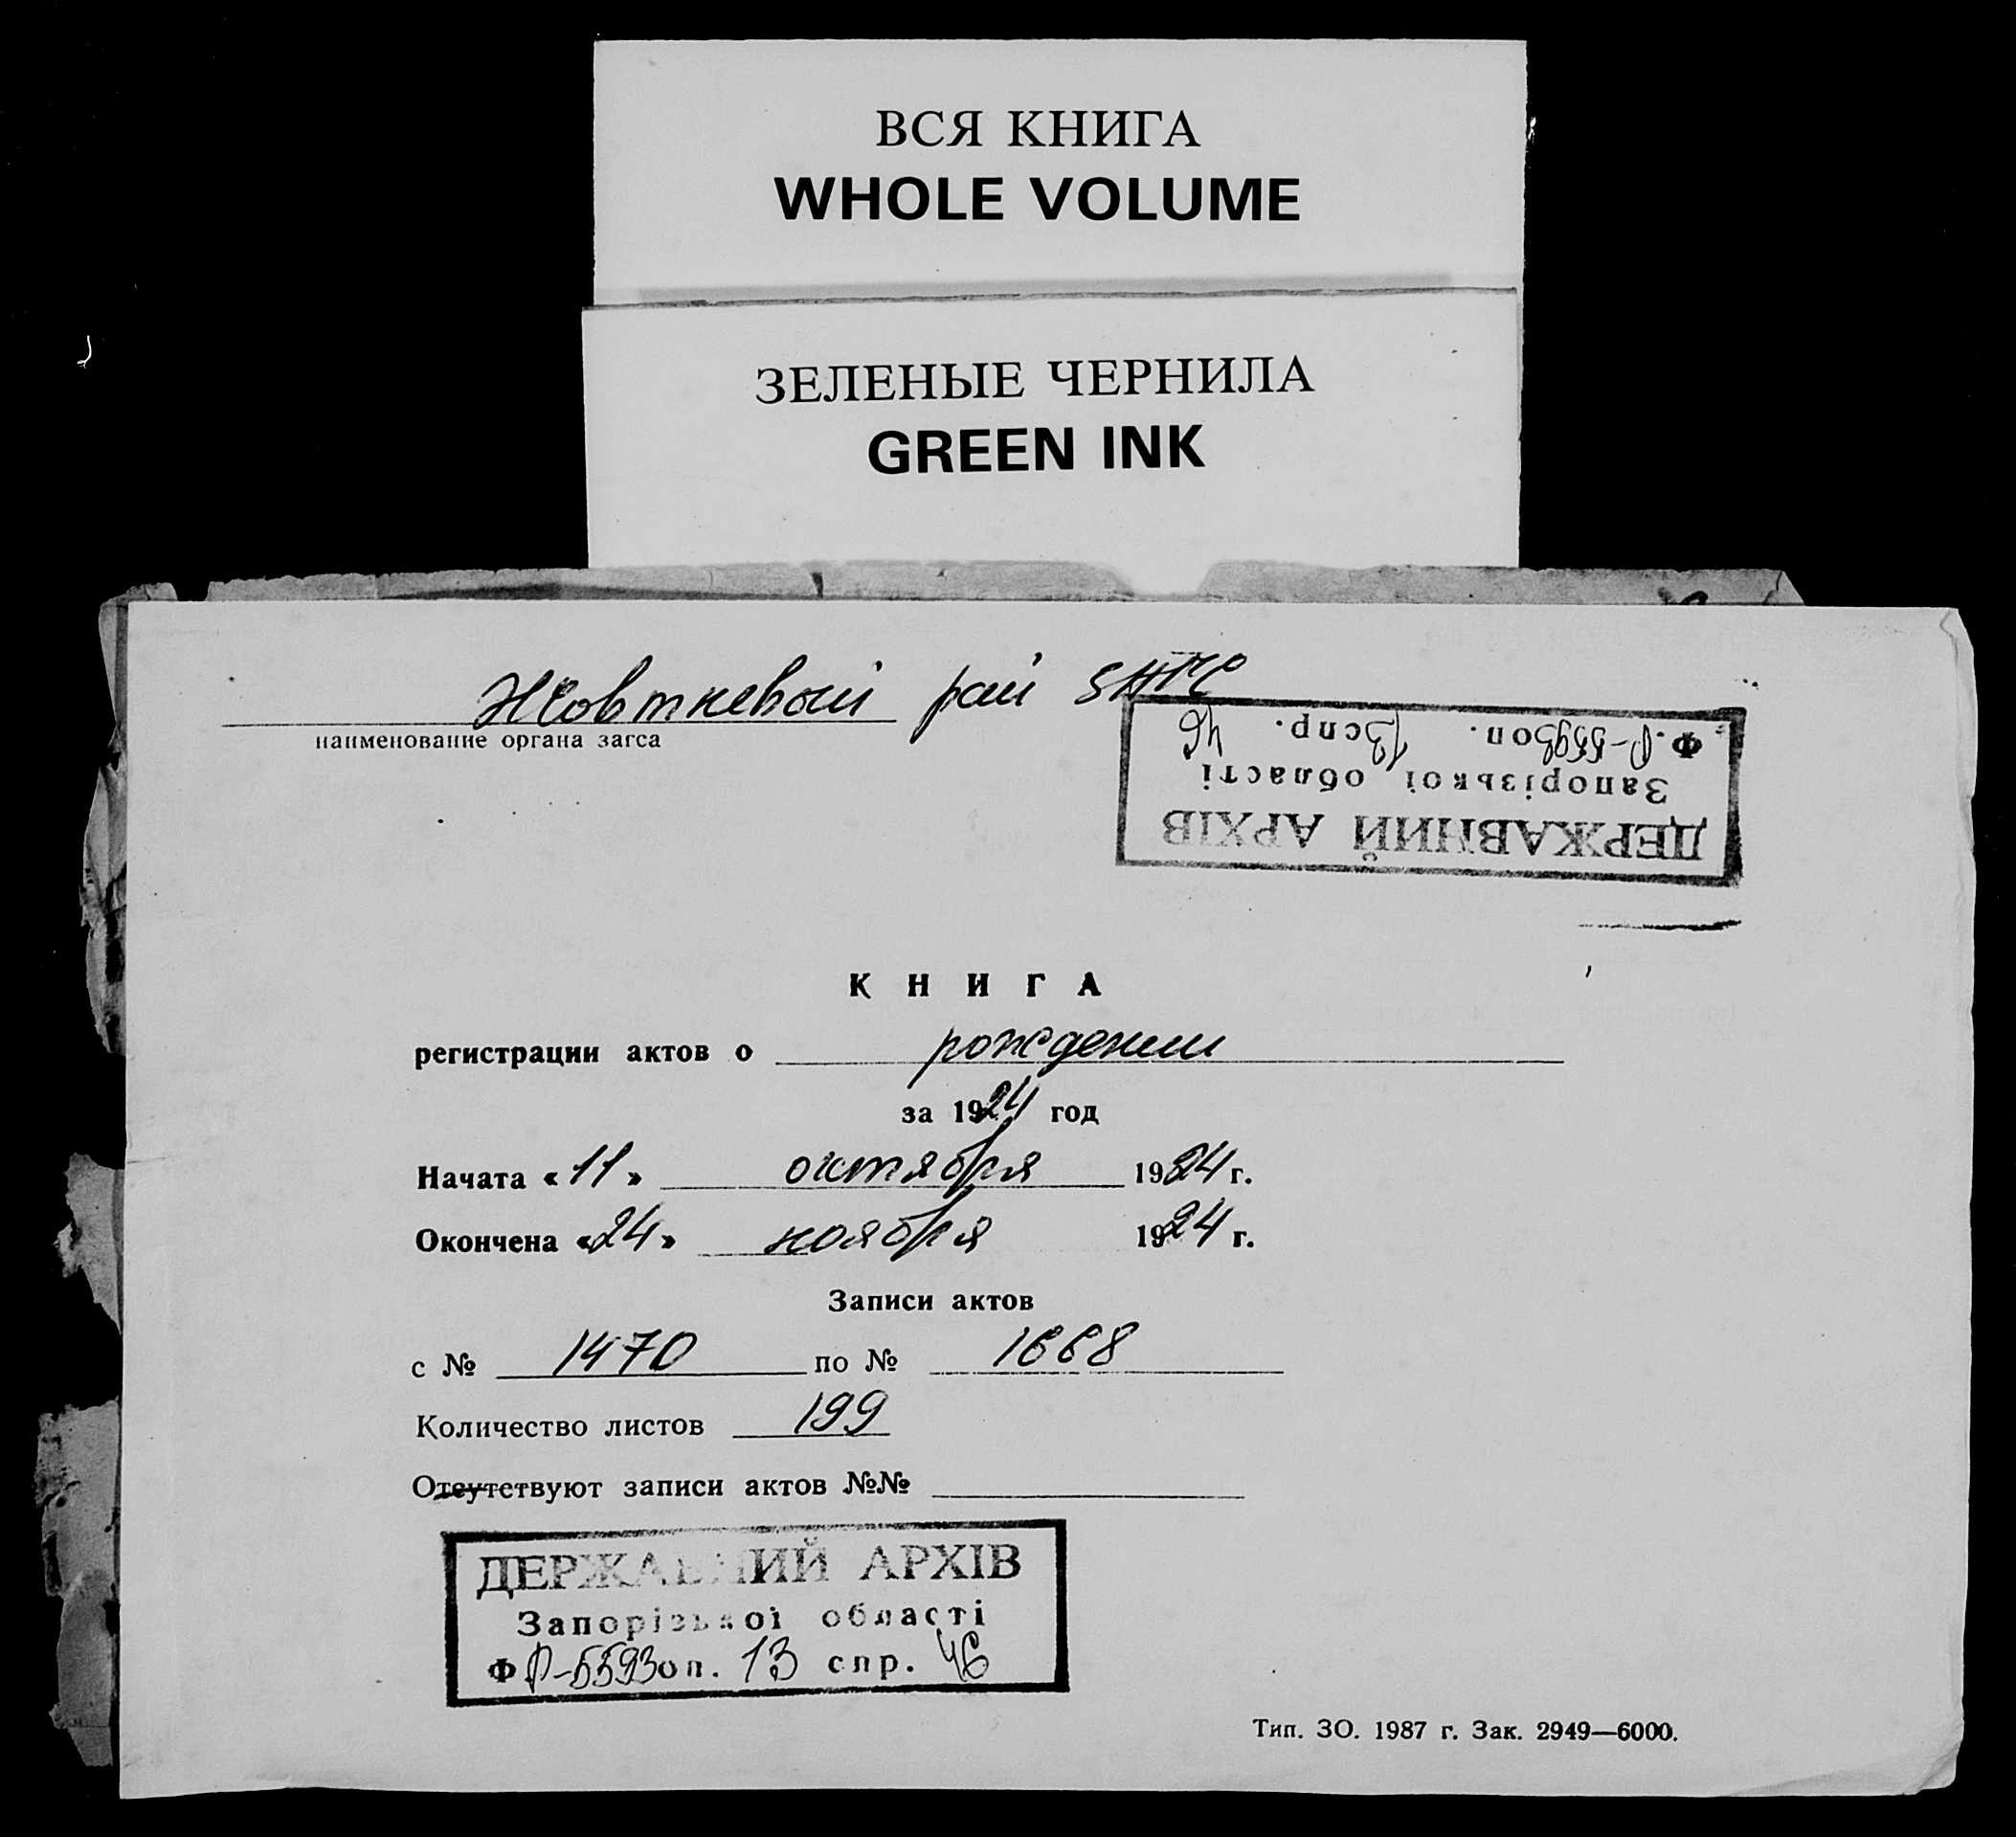 ВСЯ КНИГА
WHOLE VOLUME
ЗЕЛЕНЫЕ ЧЕРНИЛА
GREEN INK
Жовтневый рай ЗАГС
наименование органа загса
Ф. Р-5593 оп. 13 спр. 46
Запорізької області
ДЕРЖАВНИЙ АРХІВ
КНИГА
регистрации актов о рождении
за 1924 год
Начата «11» октября 1924 г.
Окончена «24» ноября 1924 г.
Записи актов
с № 1470 по № 1668
Количество листов 199
Отсутствуют записи актов №№
ДЕРЖАВНИЙ АРХІВ
Запорізької області
Ф Р-5593 оп. 13 спр. 46
Тип. ЗО. 1987 г. Зак. 2949—6000.